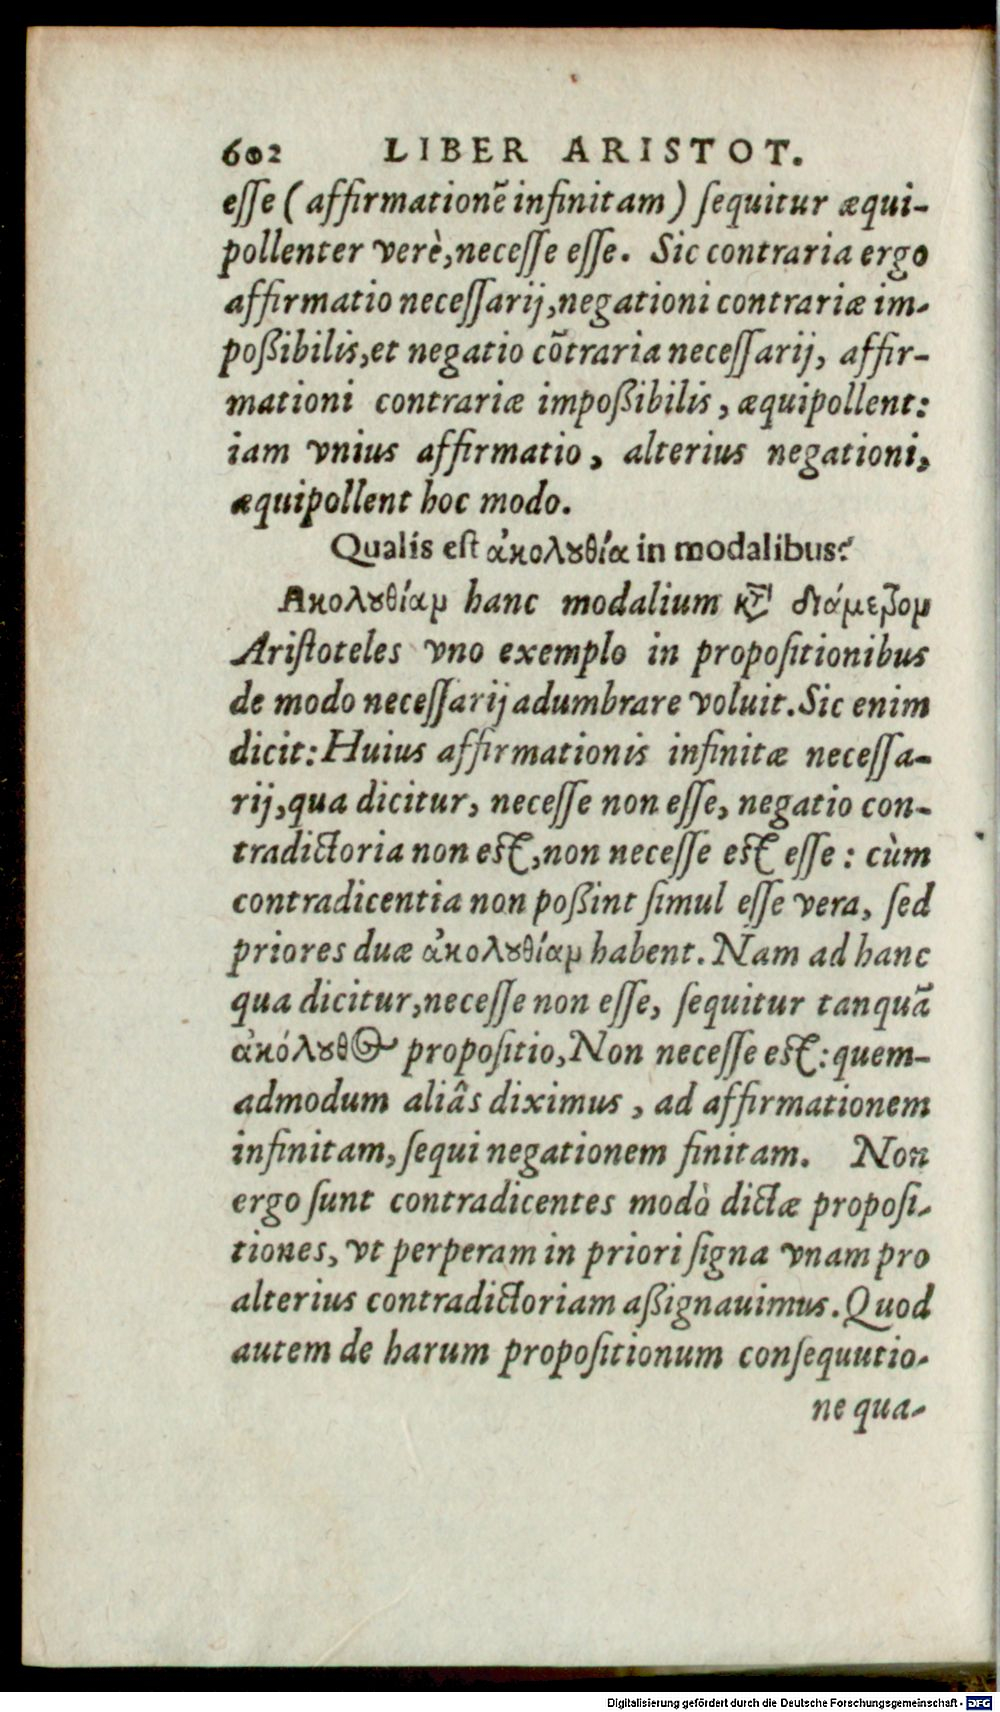 602 LIBER ARISTOT.
esse (affirmationẽ infinitam) sequitur æqui-
pollenter verè, necesse esse. Sic contraria ergo
affirmatio necessarij, negationi contrariæ im-
poßibilis, et negatio cõtraria necessarij, affir-
mationi contrariæ impoßibilis, æquipollent:
iam vnius affirmatio, alterius negationi,
æquipollent hoc modo.
Qualis est ἀκολȣθία in modalibus?
Ακολȣθίαμ hanc modalium κτ̀ διάμεβομ
Aristoteles vno exemplo in propositionibus
de modo necessarij adumbrare voluit. Sic enim
dicit: Huius affirmationis infinitæ necessa-
rij, qua dicitur, necesse non esse, negatio con-
tradictoria non est, non necesse est esse: cùm
contradicentia non poßint simul esse vera, sed
priores duæ ἀκολȣθίαμ habent. Nam ad hanc
qua dicitur, necesse non esse, sequitur tanquã
ἀκόλȣθος propositio, Non necesse est: quem-
admodum aliâs diximus, ad affirmationem
infinitam, sequi negationem finitam. Non
ergo sunt contradicentes modò dictæ proposi-
tiones, vt perperam in priori signa vnam pro
alterius contradictoriam aßignauimus. Quod
autem de harum propositionum consequutio-
ne qua-
Digitalisierung gefördert durch die Deutsche Forschungsgemeinschaft - DFG